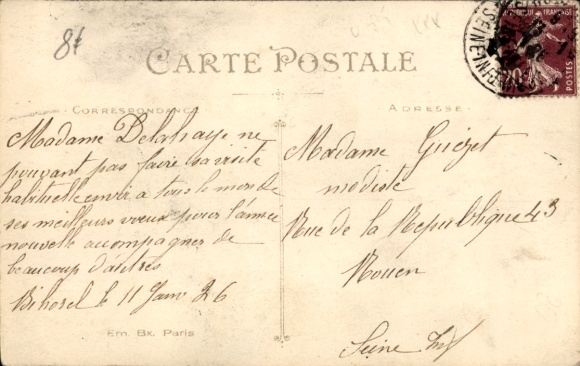 8f
CARTE POSTALE
CORRESPONDANCE
ADRESSE
Madame Delahaye ne
pouvant pas faire sa visite
habituelle envoi a tous le monde
ses meilleurs voeux pour l'année
nouvelle accompagner de
beaucoup d'autres
Bihorel le 11 Janv 26
Madame Guézet
modiste
Rue de la République 43
Rouen
Seine Inf
Em. Bx. Paris